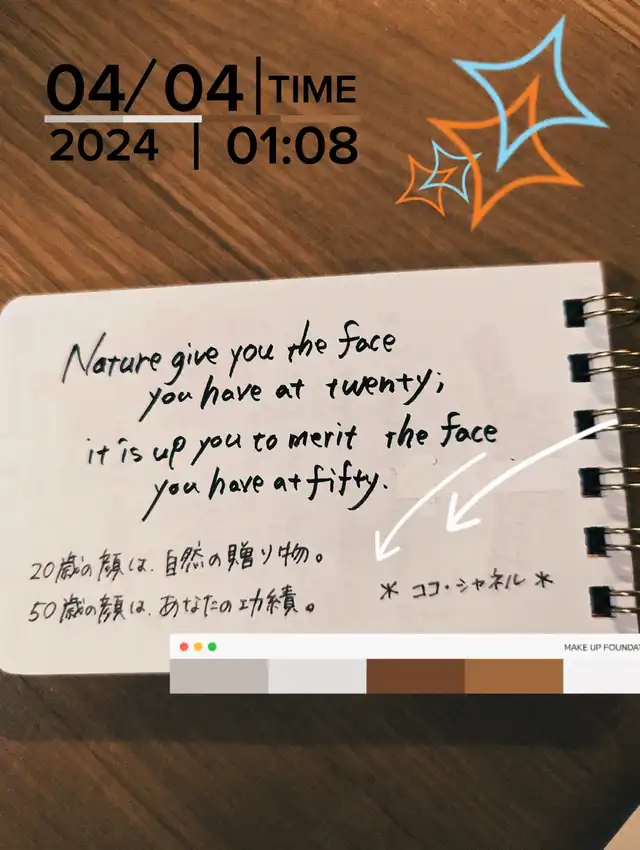 04/04 | TIME
2024 | 01:08
Nature give you the face
you have at twenty;
it is up you to merit the face
you have at fifty.
20歳の顔は、自然の贈り物。
50歳の顔は、あなたの功績。
＊ ココ・シャネル ＊
MAKE UP FOUNDAT